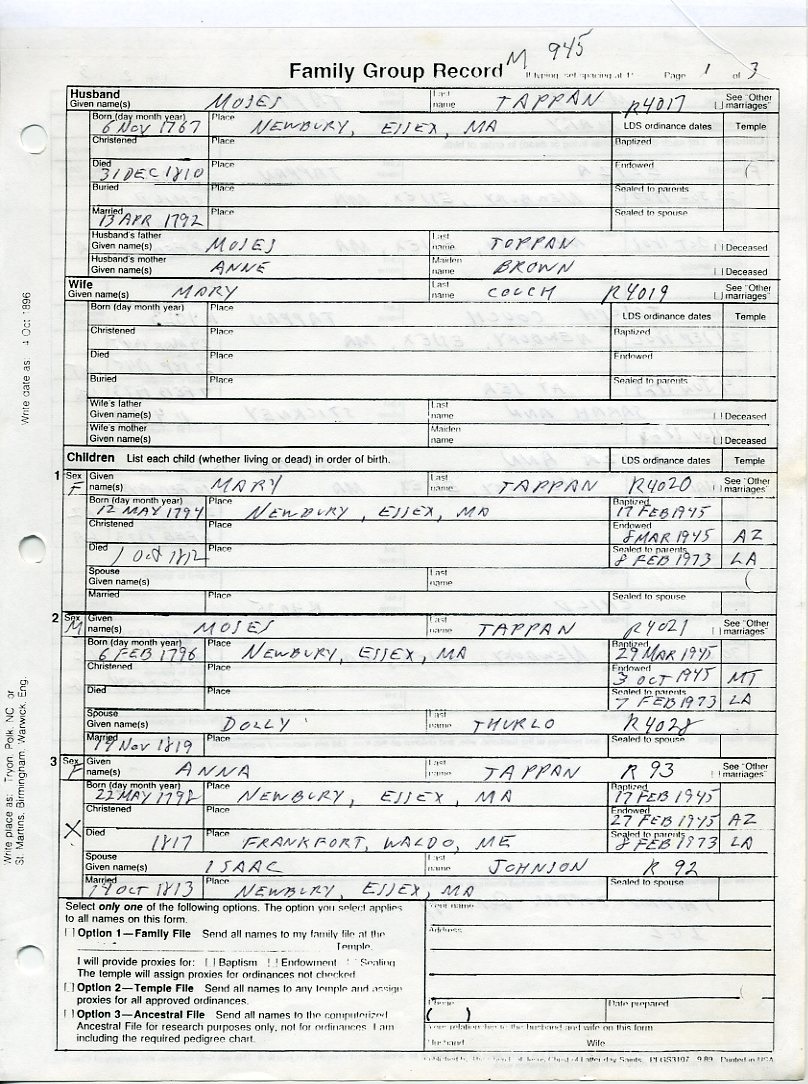 M 945
Family Group Record
If typing, set spacing at 1. Page 1 of 3
Husband
Given name(s) MOSES Last name TAPPAN R4017 See "Other marriages"
Born (day month year) 6 NOV 1767 Place NEWBURY, ESSEX, MA LDS ordinance dates Temple
Christened Place Baptized
Died 31 DEC 1810 Place Endowed
Buried Place Sealed to parents
Married 13 APR 1792 Place Sealed to spouse
Husband's father Given name(s) MOSES Last name TOPPAN Deceased
Husband's mother Given name(s) ANNE Maiden name BROWN Deceased
Wife
Given name(s) MARY Last name COUCH R4019 See "Other marriages"
Born (day month year) Place LDS ordinance dates Temple
Christened Place Baptized
Died Place Endowed
Buried Place Sealed to parents
Wife's father Given name(s) Last name Deceased
Wife's mother Given name(s) Maiden name Deceased
Children List each child (whether living or dead) in order of birth. LDS ordinance dates Temple
1 Sex F Given name(s) MARY Last name TAPPAN R4020 See "Other marriages"
Born (day month year) 12 MAY 1794 Place NEWBURY, ESSEX, MA Baptized 17 FEB 1945
Christened Place Endowed 8 MAR 1945 AZ
Died 1 Oct 1812 Place Sealed to parents 8 FEB 1973 LA
Spouse Given name(s) Last name
Married Place Sealed to spouse
2 Sex M Given name(s) MOSES Last name TAPPAN R4021 See "Other marriages"
Born (day month year) 6 FEB 1796 Place NEWBURY, ESSEX, MA Baptized 29 MAR 1945
Christened Place Endowed 3 OCT 1945 MT
Died Place Sealed to parents 7 FEB 1973 LA
Spouse Given name(s) DOLLY Last name THURLO R4028
Married 19 NOV 1819 Place Sealed to spouse
3 Sex F Given name(s) ANNA Last name TAPPAN R 93 See "Other marriages"
Born (day month year) 22 MAY 1798 Place NEWBURY, ESSEX, MA Baptized 17 FEB 1945
Christened Place Endowed 27 FEB 1945 AZ
X Died 1817 Place FRANKFORT, WALDO, ME Sealed to parents 8 FEB 1973 LA
Spouse Given name(s) ISAAC Last name JOHNSON R 92
Married 19 OCT 1813 Place NEWBURY, ESSEX, MA Sealed to spouse
Select only one of the following options. The option you select applies
to all names on this form.
Option 1—Family File Send all names to my family file at the
Temple.
I will provide proxies for: Baptism Endowment Sealing
The temple will assign proxies for ordinances not checked
Option 2—Temple File Send all names to any temple and assign
proxies for all approved ordinances.
Option 3—Ancestral File Send all names to the computerized
Ancestral File for research purposes only, not for ordinances. I am
including the required pedigree chart.
Your name
Address
Phone ( ) Date prepared
Your relationship to the husband and wife on this form
Husband Wife
Published by The Church of Jesus Christ of Latter-day Saints PFGS3107 9/89 Printed in USA
Write date as: 4 Oct 1896
Write place as: Tryon, Polk, NC or
St. Martins, Birmingham, Warwick, Eng.